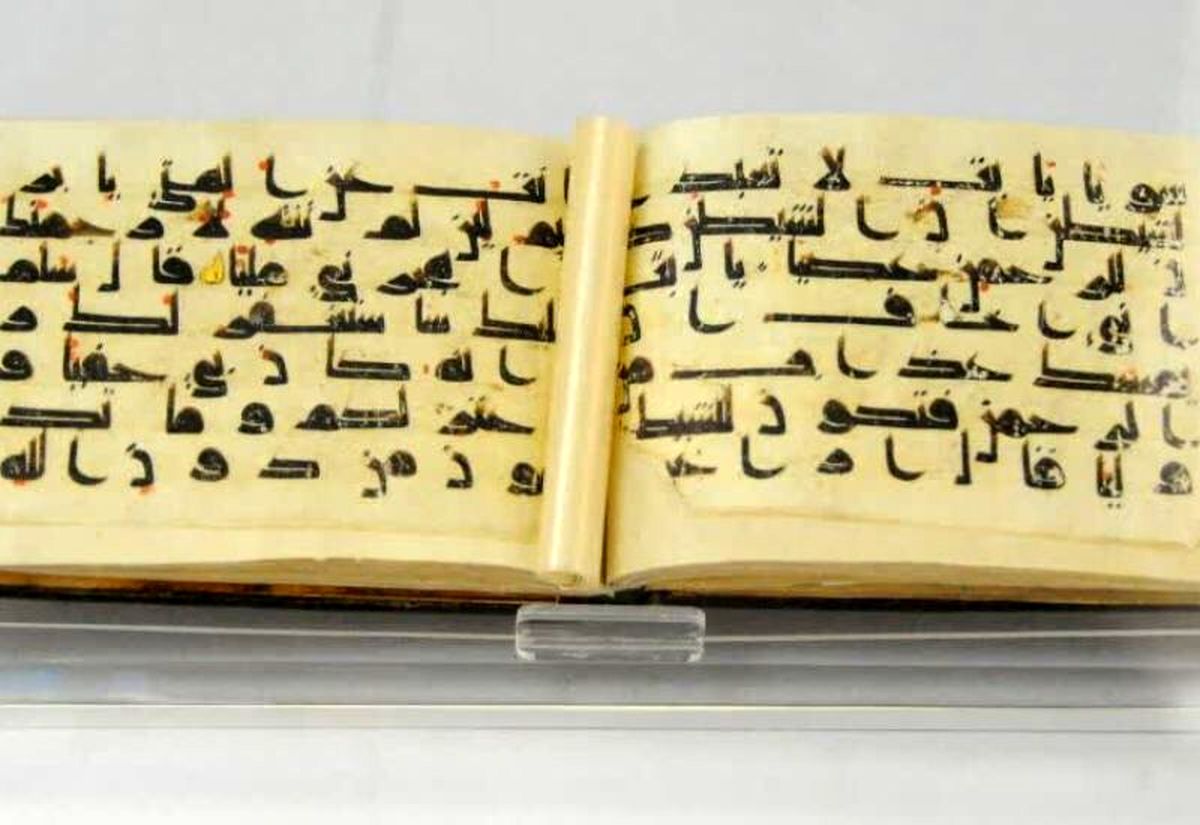 سويا يا بت لا تعبد
الشيطن ان الشيطن كا
ن للرحمن عصيا يا بت
اني اخاف ان
يمسك عذاب من
الرحمن فتكون للشيطن
وليا قال اراغب
انت عن الهتي يا بر
هيم لئن لم تنته لارجمنك
واهجرني مليا قال سلم
عليك ساستغفر لك ر
بي انه كان بي حفيا و
اعتزلكم وما تد
عون من دون الله